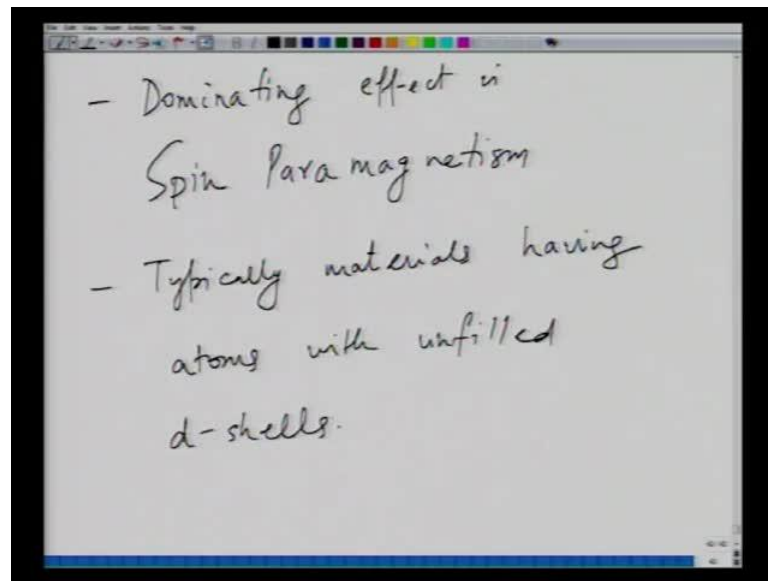 - Dominating effect is
Spin Paramagnetism
- Typically materials having
atoms with unfilled
d-shells.